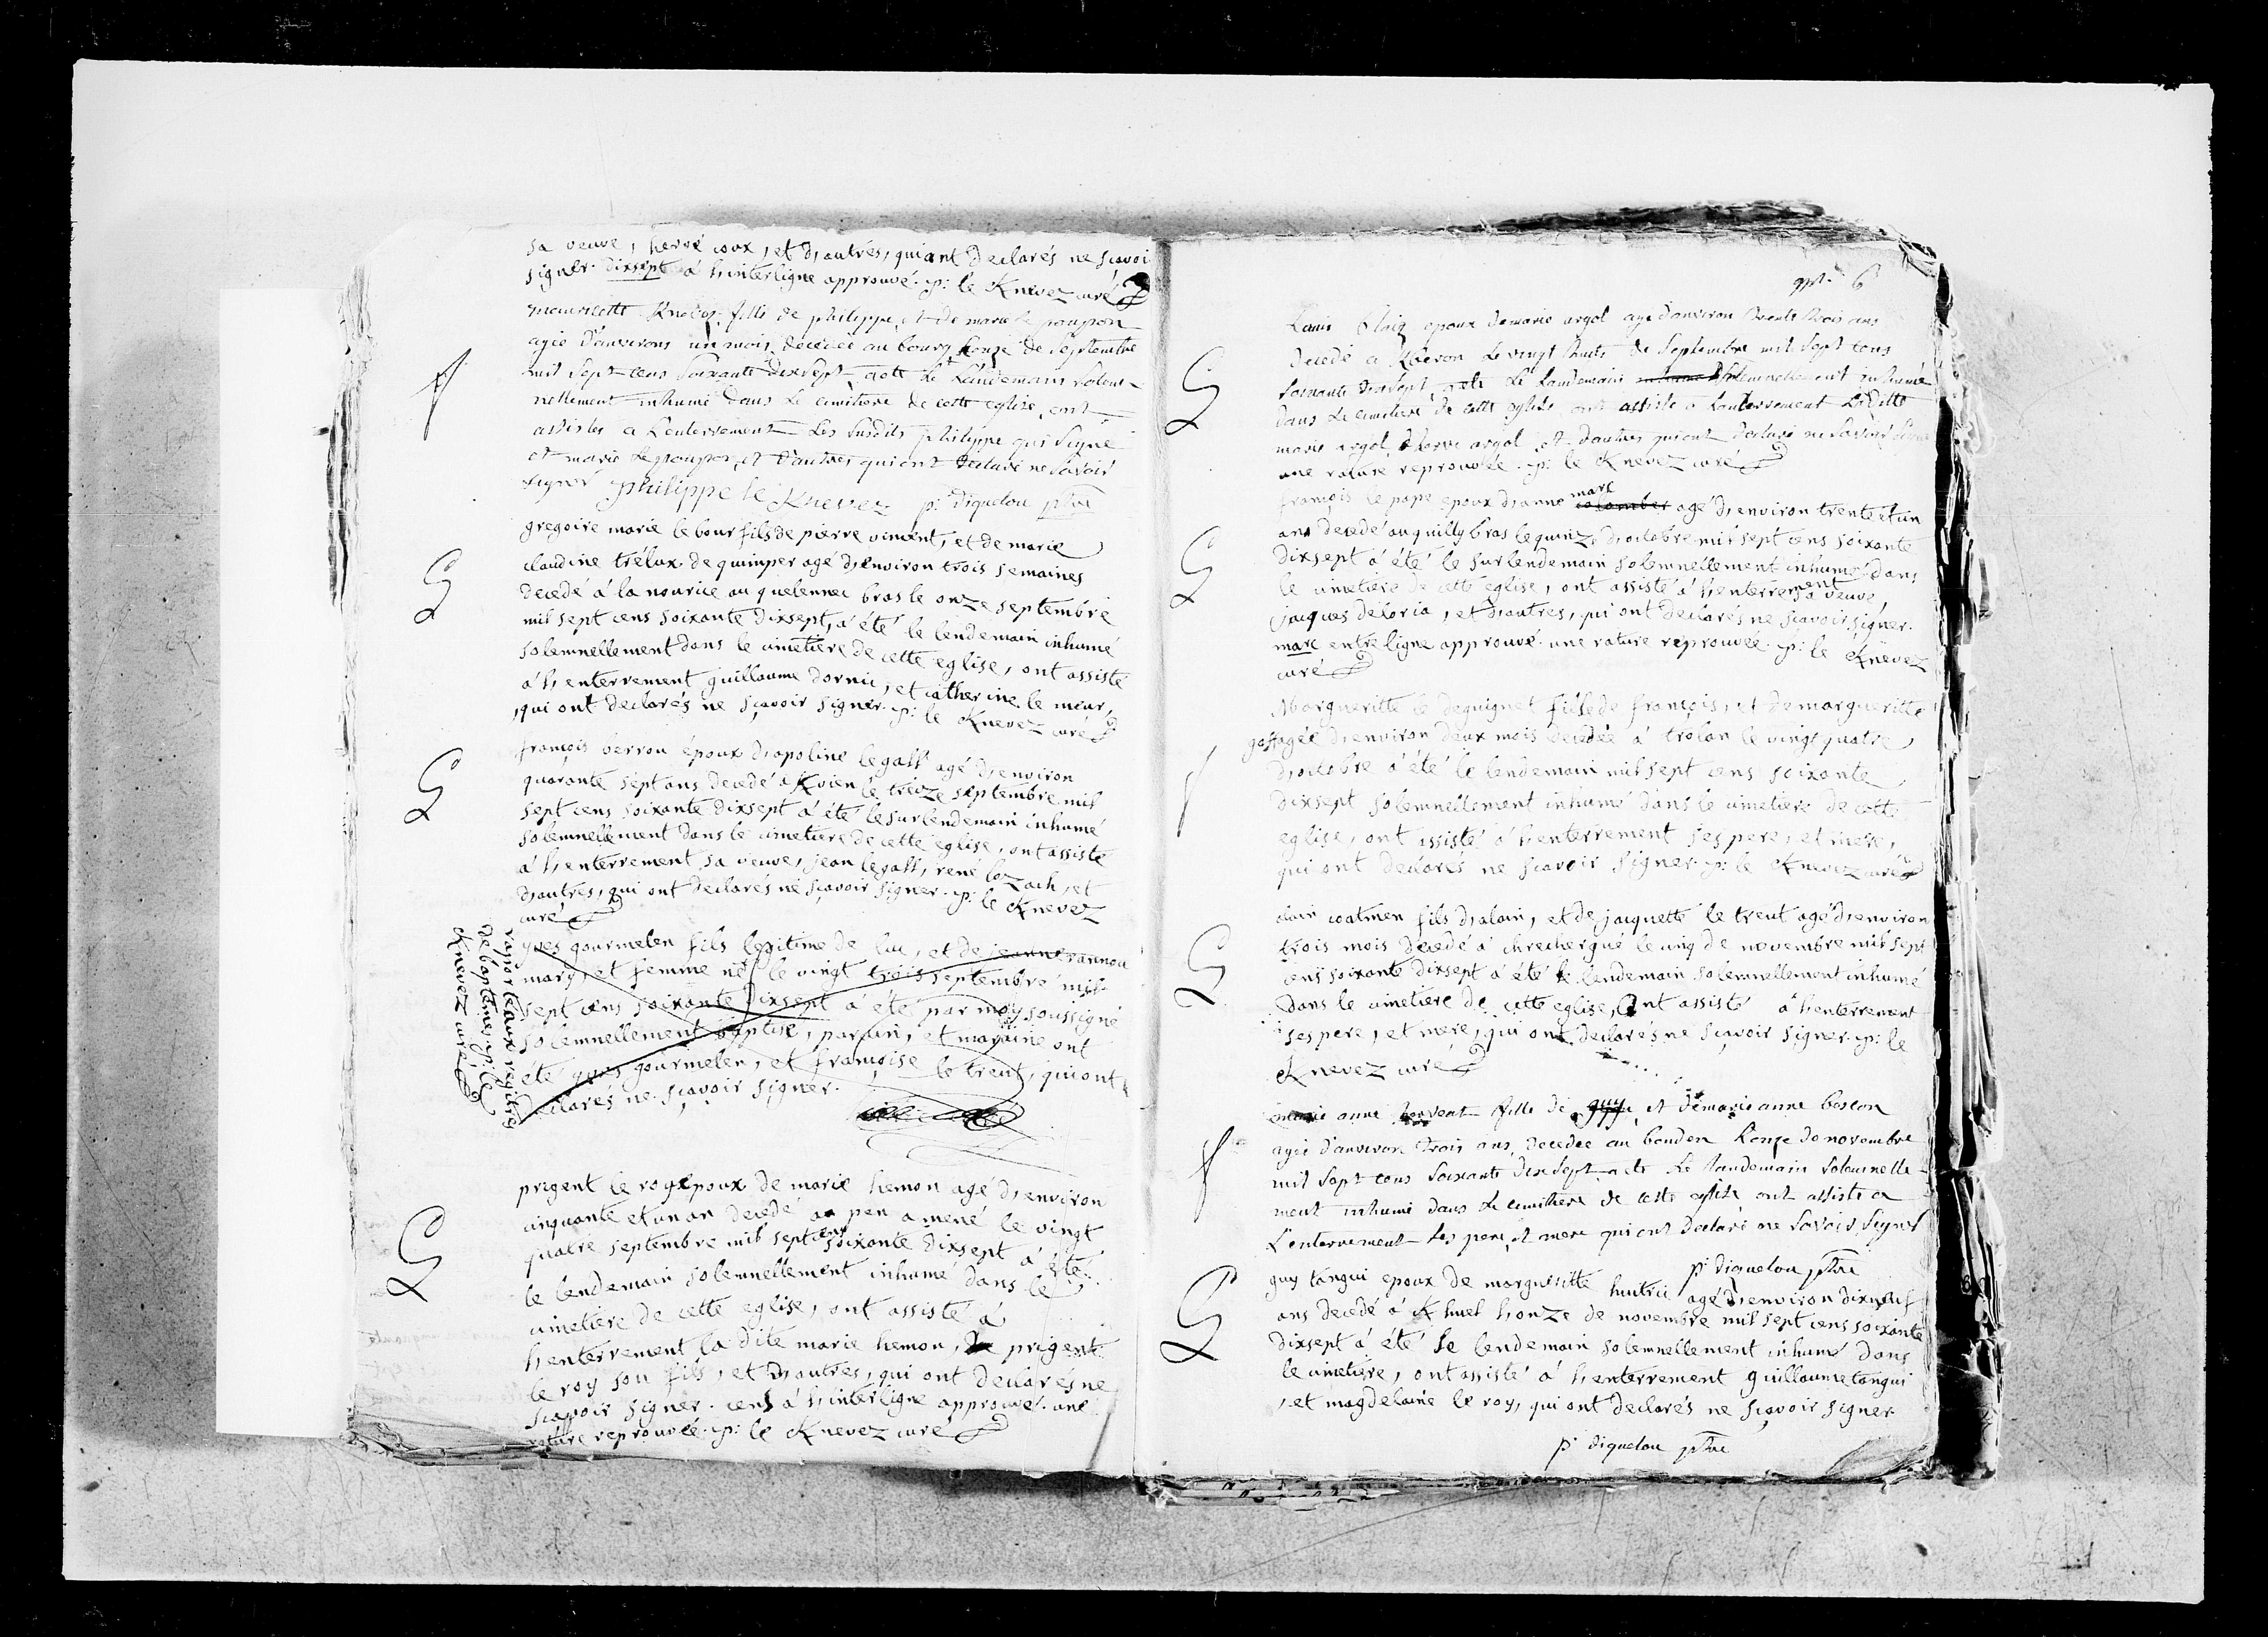 sa veuve, hervé coux, et d'autres, qui ont declarés ne scavoi
signer. dixsept à l'interligne approuvé. p: le Knevez curé
mauricette Knevez fille de philippe, et de marie le poupon
agée d'anvirons un mois, decedée au bourg l'onze de Septembre
mil Sept cens Soixante dixsept, a ete Le Landemain Solem-
nellement inhumé dans Le cimitiere de cette eglise, ont
assistes a L'enterrement Les Susdits philippe qui Signe
et marie Le poupon, et d'autres qui ont declaré ne Savoir
Signer philippe le Knevez p: diquelou ptre
gregoire marie le bour fils de pierre vincent, et de marie
claudine trélux de quimper agé d'environ trois semaines
decedé à la nourice au quelennec bras le onze septembre
mil sept cens soixante dixsept, a été le lendemain inhumé
solemnellement dans le cimetiere de cette eglise, ont assisté
à l'enterrement guillaume dornic, et catherine le meur,
qui ont declarés ne sçavoir signer. p: le Knevez curé
françois berrou époux d'apoline le gall agé d'environ
quarante sept ans decedé à Kvien le treize septembre mil
sept cens soixante dixsept à été le surlendemain inhumé
solemnellement dans le cimetiere de cette eglise, ont assisté
à l'enterrement sa veuve, jean le gall, rené lozach, et
d'autres, qui ont declarés ne sçavoir signer. p: le Knevez
curé
yves gourmelen fils legitime de luc, et de jeanne rannou
mary, et femme né le vingt trois septembre mil
sept cens soixante dixsept à été par moy soussigné
solemnellement baptisé, parain, et maraine ont
été yves gourmelen, et françoise le treut, qui ont
declarés ne sçavoir signer.
raporté aux regitres
de baptêmes. p: le
Knevez curé
prigent le roy époux de marie hemon agé d'environ
cinquante et un an decedé a pen a mené le vingt
quatre septembre mil sept cens soixante dixsept à été
le lendemain solemnellement inhumé dans le
cimetiere de cette eglise, ont assisté à
l'enterrement la dite marie hemon, prigent
le roy son fils, et d'autres, qui ont declarés ne
scavoir signer. cens à l'interligne approuvé. une
rature reprouvée. p: le Knevez curé
6
Louis blaiz epoux de marie argol agé d'anviron trente trois ans
decedé a Kveron Le vingt huits de Septembre mil Sept cens
Soixante dixsept, a ete Le Landemain Solemnellement inhumé
dans Le cimitiere de cette eglise ont assiste a Lanterrement Laditte
marie argol, herve argol, et d'autres qui ont declaré ne Savoir
une rature reprouvée. p: le Knevez curé
françois le pape epoux d'anne marc colomber agé d'environ trente et un
ans decedé au quilly bras le quinze d'octobre mil sept cens soixante
dixsept à été le surlendemain solemnellement inhumé dans
le cimetiere de cette eglise, ont assisté à l'enterrement sa veuve,
jacques deloria, et d'autres, qui ont declarés ne scavoir signer.
marc entre ligne approuvé. une rature reprouvée. p: le Knevez
curé
Margueritte le deguignet fille de françois, et de margueritte
goff agée d'environ deux mois decedée à trolan le vingt quatre
d'octobre à été le lendemain mil sept cens soixante
dixsept solemnellement inhumé dans le cimetiere de cette
eglise, ont assisté à l'enterrement ses pere, et mere,
qui ont declarés ne scavoir signer. p: le Knevez curé
alain coatmen fils d'alain, et de jacquette le treut agé d'environ
trois mois decedé à chrechergué le cinq de novembre mil sept
cens soixante dixsept à été le lendemain solemnellement inhumé
dans le cimetiere de cette eglise, ont assisté à l'enterrement
ses pere, et mere, qui ont declarés ne sçavoir signer. p: le
Knevez curé
marie anne fille de guy, et de marie anne boscon
agée d'anviron trois ans, decedee au bouden L'onze de novembre
mil Sept cens Soixante dixsept a ete Le Landemain Solemnelle-
ment inhumé dans Le cimitiere de cette eglise ont assiste a
L'enterrement Les pere, et mere qui ont declaré ne Savoir Signer
p: diquelou ptre
guy tangui epoux de margueritte huitric agé d'environ dixneuf
ans decedé à Khuel l'onze de novembre mil sept cens soixante
dixsept à été le lendemain solemnellement inhumé dans
le cimetiere, ont assisté à l'enterrement guillaume tangui
, et magdelaine le roy, qui ont declarés ne sçavoir signer.
p: diquelou ptre